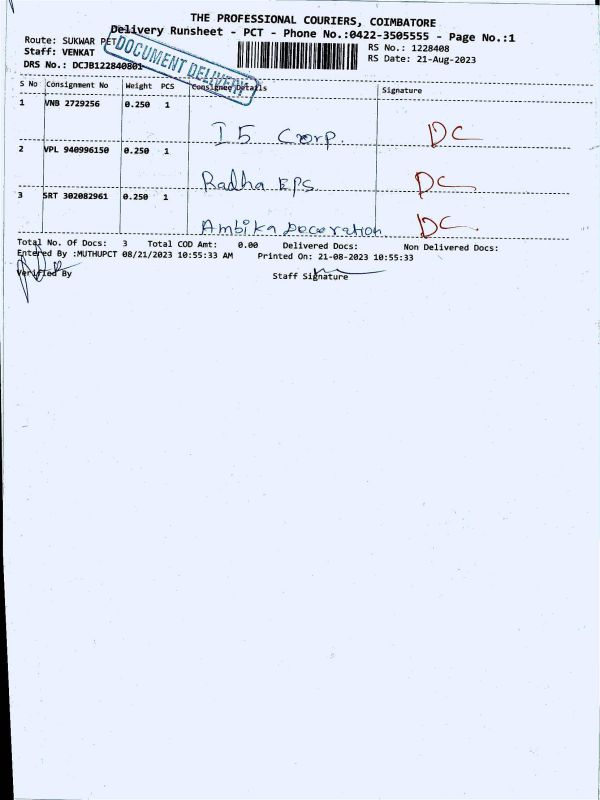 THE PROFESSIONAL COURIERS, COIMBATORE
Delivery Runsheet - PCT - Phone No.:0422-3505555 - Page No.:1
Route: SUKWAR PET
Staff: VENKAT
DRS No.: DCJB122840801
DOCUMENT DELIVERY
RS No.: 1228408
RS Date: 21-Aug-2023
S No Consignment No Weight PCS Consignee Details Signature
1 VNB 2729256 0.250 1
I5 Corp. DC
2 VPL 940996150 0.250 1
Radha EPS DC
3 SRT 302082961 0.250 1
Ambika Decoration DC
Total No. Of Docs: 3 Total COD Amt: 0.00 Delivered Docs: Non Delivered Docs:
Entered By :MUTHUPCT 08/21/2023 10:55:33 AM Printed On: 21-08-2023 10:55:33
Verified By Staff Signature